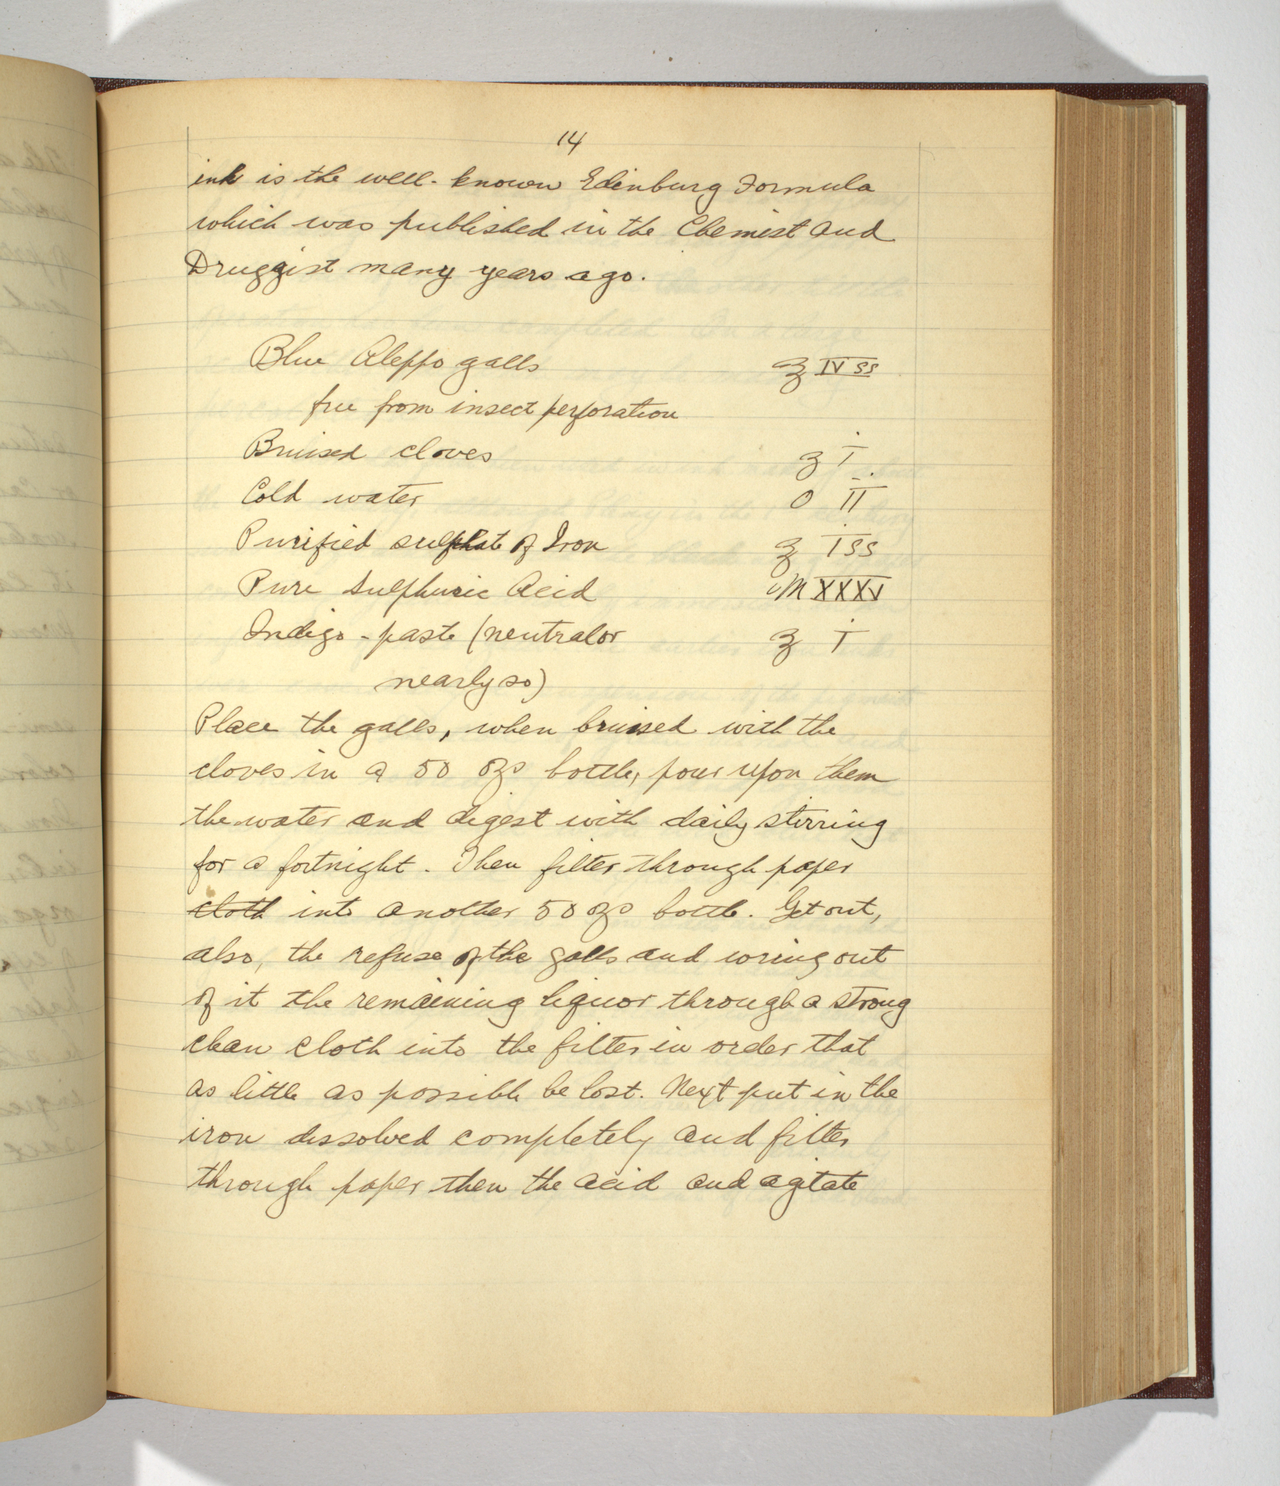 14
ink is the well-known Edinburg Formula
which was published in the Chemist and
Druggist many years ago.
Blue Aleppo galls ʒ IV ss
free from insect perforation
Bruised cloves ʒ i
Cold water O ii
Purified sulphate of Iron ʒ iss
Pure Sulphuric Acid ♏ XXXV
Indigo-paste (neutral or ʒ i
nearly so)
Place the galls, when bruised with the
cloves in a 50 ozs bottle, pour upon them
the water and digest with daily stirring
for a fortnight. Then filter through paper
cloth into another 50 ozs bottle. Get out,
also, the refuse of the galls and wring out
of it the remaining liquor through a strong
clean cloth into the filter in order that
as little as possible be lost. Next put in the
iron dissolved completely and filter
through paper then the acid and agitate